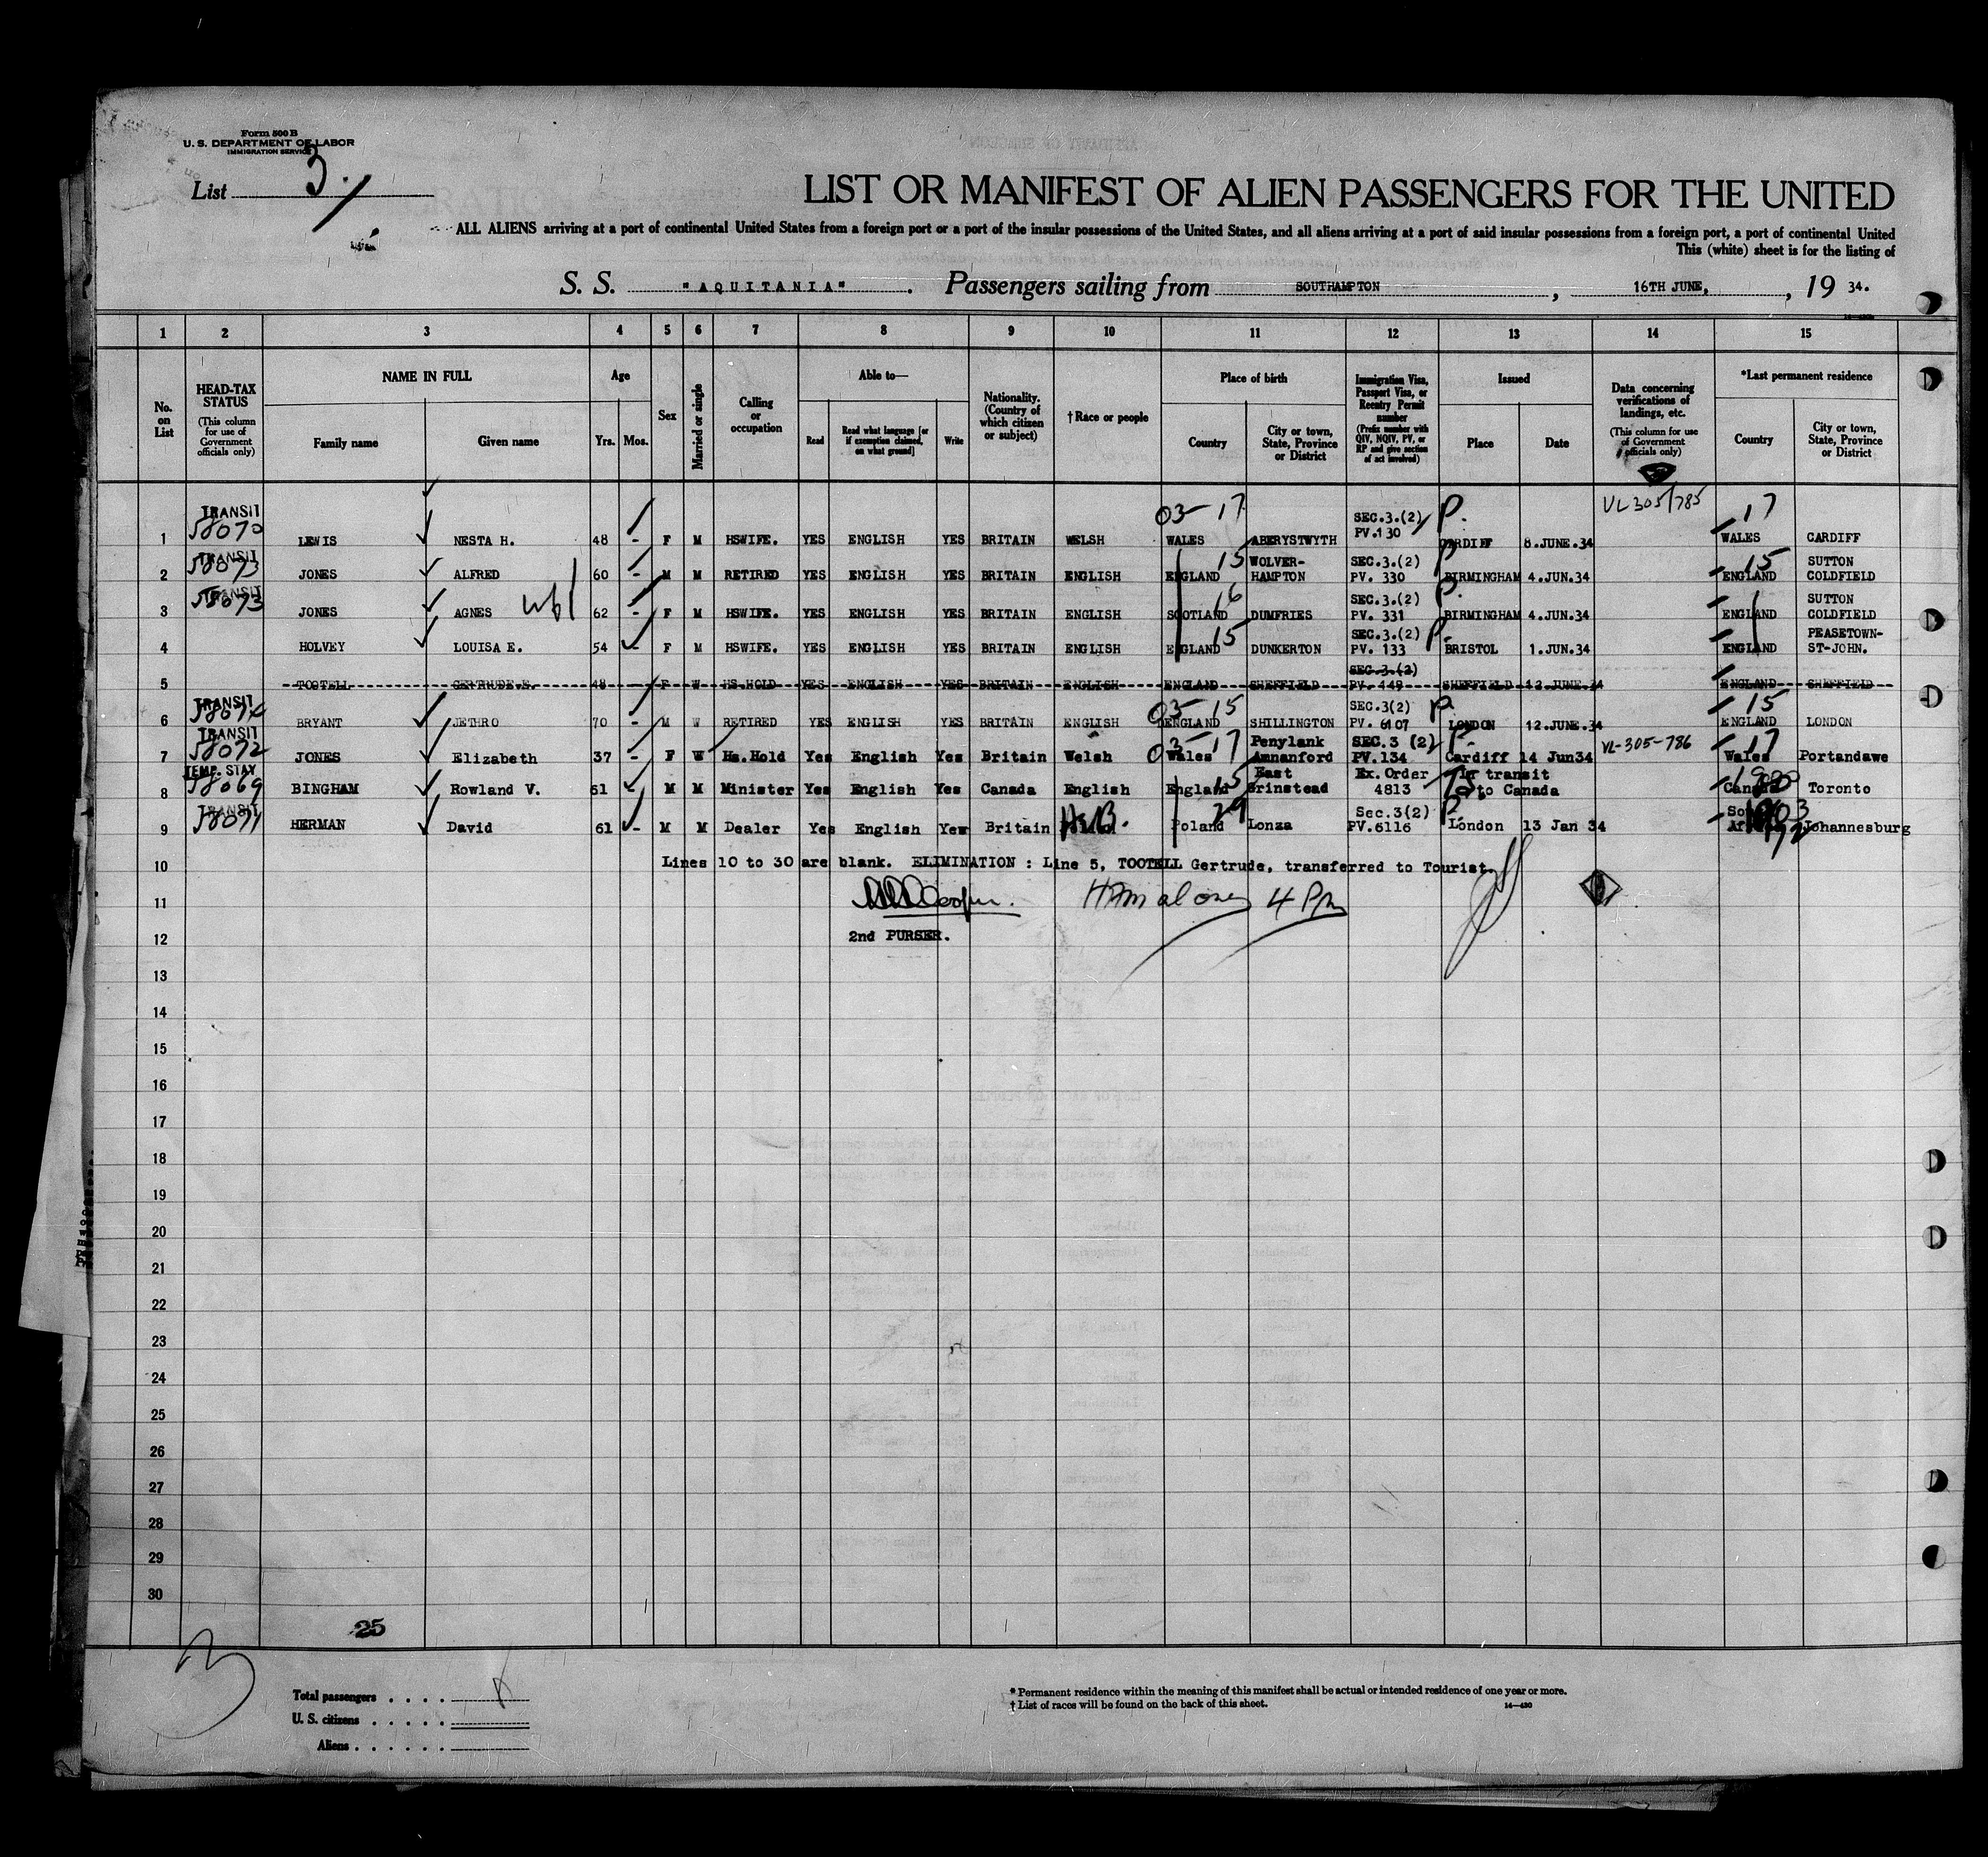 Form 500 B
U. S. DEPARTMENT OF LABOR
IMMIGRATION SERVICE
List 3.
LIST OR MANIFEST OF ALIEN PASSENGERS FOR THE UNITED
ALL ALIENS arriving at a port of continental United States from a foreign port or a port of the insular possessions of the United States, and all aliens arriving at a port of said insular possessions from a foreign port, a port of continental United
This (white) sheet is for the listing of
S. S. "AQUITANIA". Passengers sailing from SOUTHAMPTON, 16TH JUNE, , 19 34.
1 2 3 4 5 6 7 8 9 10 11 12 13 14 15
No. on List
HEAD-TAX STATUS (This column for use of Government officials only)
NAME IN FULL Family name Given name
Age Yrs. Mos.
Sex
Married or single
Calling or occupation
Able to— Read Read what language [or if exemption claimed, on what ground] Write
Nationality. (Country of which citizen or subject)
† Race or people
Place of birth Country City or town, State, Province or District
Immigration Visa, Passport Visa, or Reentry Permit number (Prefix number with QIV, NQIV, PV, or RP and give section of act involved)
Issued Place Date
Data concerning verifications of landings, etc. (This column for use of Government officials only)
*Last permanent residence Country City or town, State, Province or District
TRANSIT 03-17 SEC.3.(2) P. VL305/785 17
1 58070 LEWIS NESTA H. 48 - F M HSWIFE. YES ENGLISH YES BRITAIN WELSH WALES ABERYSTWYTH PV.130 CARDIFF 8.JUNE.34 WALES CARDIFF
TRANSIT 15 WOLVER- SEC.3.(2) P 15 SUTTON
2 58073 JONES ALFRED 60 - M M RETIRED YES ENGLISH YES BRITAIN ENGLISH ENGLAND HAMPTON PV. 330 BIRMINGHAM 4.JUN.34 ENGLAND COLDFIELD
TRANSIT 16 SEC.3.(2) P. SUTTON
3 58073 JONES AGNES 62 - F M HSWIFE. YES ENGLISH YES BRITAIN ENGLISH SCOTLAND DUMFRIES PV. 331 BIRMINGHAM 4.JUN.34 ENGLAND COLDFIELD
15 SEC.3.(2) P. PEASETOWN-
4 HOLVEY LOUISA E. 54 - F M HSWIFE. YES ENGLISH YES BRITAIN ENGLISH ENGLAND DUNKERTON PV. 133 BRISTOL 1.JUN.34 ENGLAND ST-JOHN.
SEC.3.(2)
5 TOOTELL GERTRUDE.E. 48 F W HS.HOLD YES ENGLISH YES BRITAIN ENGLISH ENGLAND SHEFFIELD PV. 449 SHEFFIELD 12.JUNE.34 ENGLAND SHEFFIELD
TRANSIT 03-15 SEC.3(2) P. 15
6 BRYANT JETHRO 70 - M W RETIRED YES ENGLISH YES BRITAIN ENGLISH ENGLAND SHILLINGTON PV. 6107 LONDON 12.JUNE.34 ENGLAND LONDON
TRANSIT 03-17 Penylank SEC.3 (2) P. VL-305-786 17
7 58072 JONES Elizabeth 37 - F W Hs.Hold Yes English Yes Britain Welsh Wales Amnanford PV.134 Cardiff 14 Jun34 Wales Portandawe
TEMP. STAY 15 East Ex. Order In transit
8 58069 BINGHAM Rowland V. 61 M M Minister Yes English Yes Canada English England Grinstead 4813 to Canada Canada Toronto
TRANSIT 29 Sec.3(2) P.
9 58071 HERMAN David 61 - M M Dealer Yes English Yes Britain Poland Lonza PV.6116 London 13 Jan 34 Johannesburg
10 Lines 10 to 30 are blank. ELIMINATION : Line 5, TOOTELL Gertrude, transferred to Tourist.
11 4 Pm
12 2nd PURSER.
13
14
15
16
17
18
19
20
21
22
23
24
25
26
27
28
29
30
25
3
Total passengers . . . .
U. S. citizens . . . . .
Aliens . . . . . .
* Permanent residence within the meaning of this manifest shall be actual or intended residence of one year or more.
† List of races will be found on the back of this sheet. 14—430